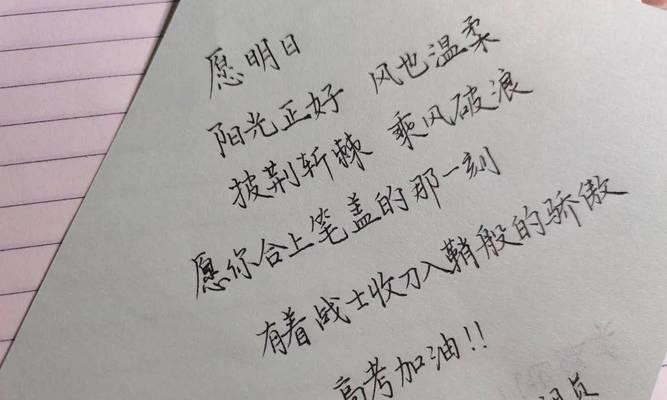 愿明日
阳光正好 风也温柔
披荆斩棘 乘风破浪
愿你合上笔盖的那一刻
有着战士收刀入鞘般的骄傲
高考加油!!